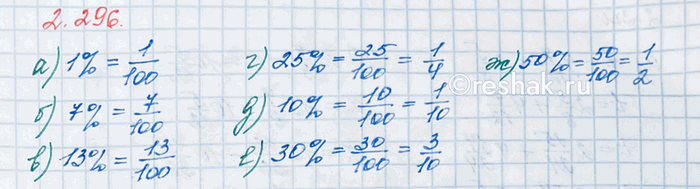 2.296.
а) 1% = 1/100
б) 7% = 7/100
в) 13% = 13/100
г) 25% = 25/100 = 1/4
д) 10% = 10/100 = 1/10
е). 30% = 30/100 = 3/10
ж) 50% = 50/100 = 1/2
reshak.ru